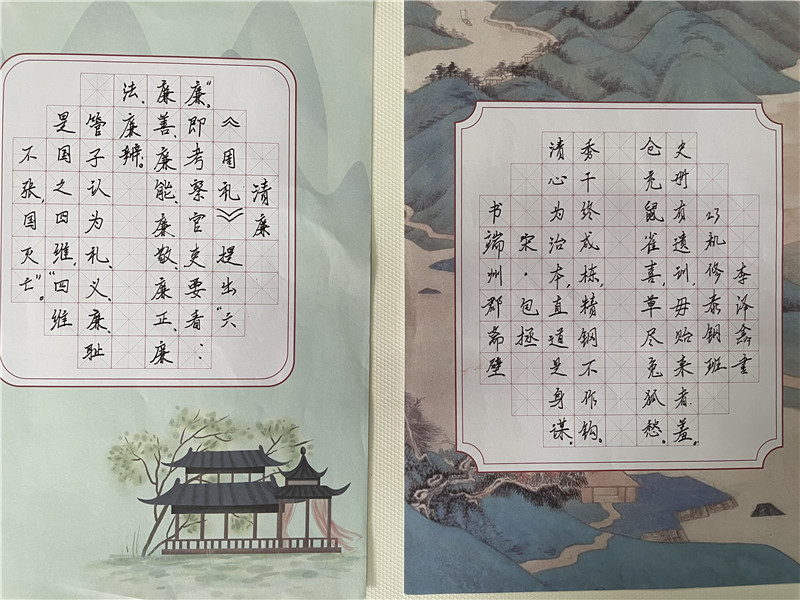 清廉
《周礼》提出“六
廉”，即考察官吏要看：
廉善、廉能、廉敬、廉正、廉
法、廉辨。
管子认为礼、义、廉、耻
是国之四维，“四维
不张，国灭亡”。
书端州郡斋壁
宋·包拯
清心为治本，直道是身谋。
秀干终成栋，精钢不作钩。
仓充鼠雀喜，草尽兔狐愁。
史册有遗训，毋贻来者羞。
23机修泰钢班
李泽鑫书